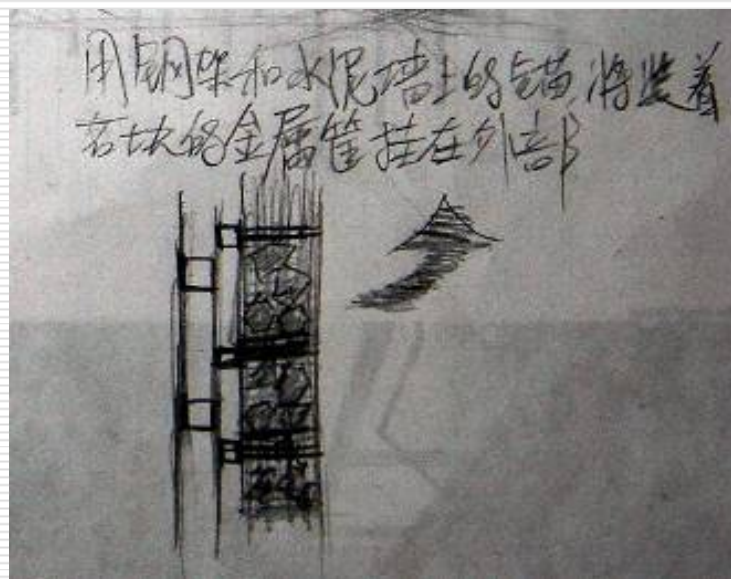 用钢架和水泥墙上的锚，将装着
石块的金属筐挂在外部